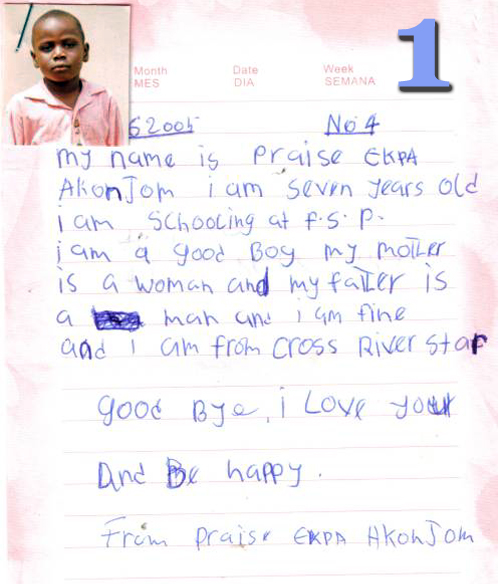 1
Month Date Week
MES DIA SEMANA
S2005 No4
my name is praise EKPA
AkonJom i am seven years old
i am schooling at f.s.p.
i am a good Boy my motler
is a woman and my fatler is
a man and i am fine
and i am from cross River star
good Bye, i Love you
And Be happy.
From praise EKPA AkonJom